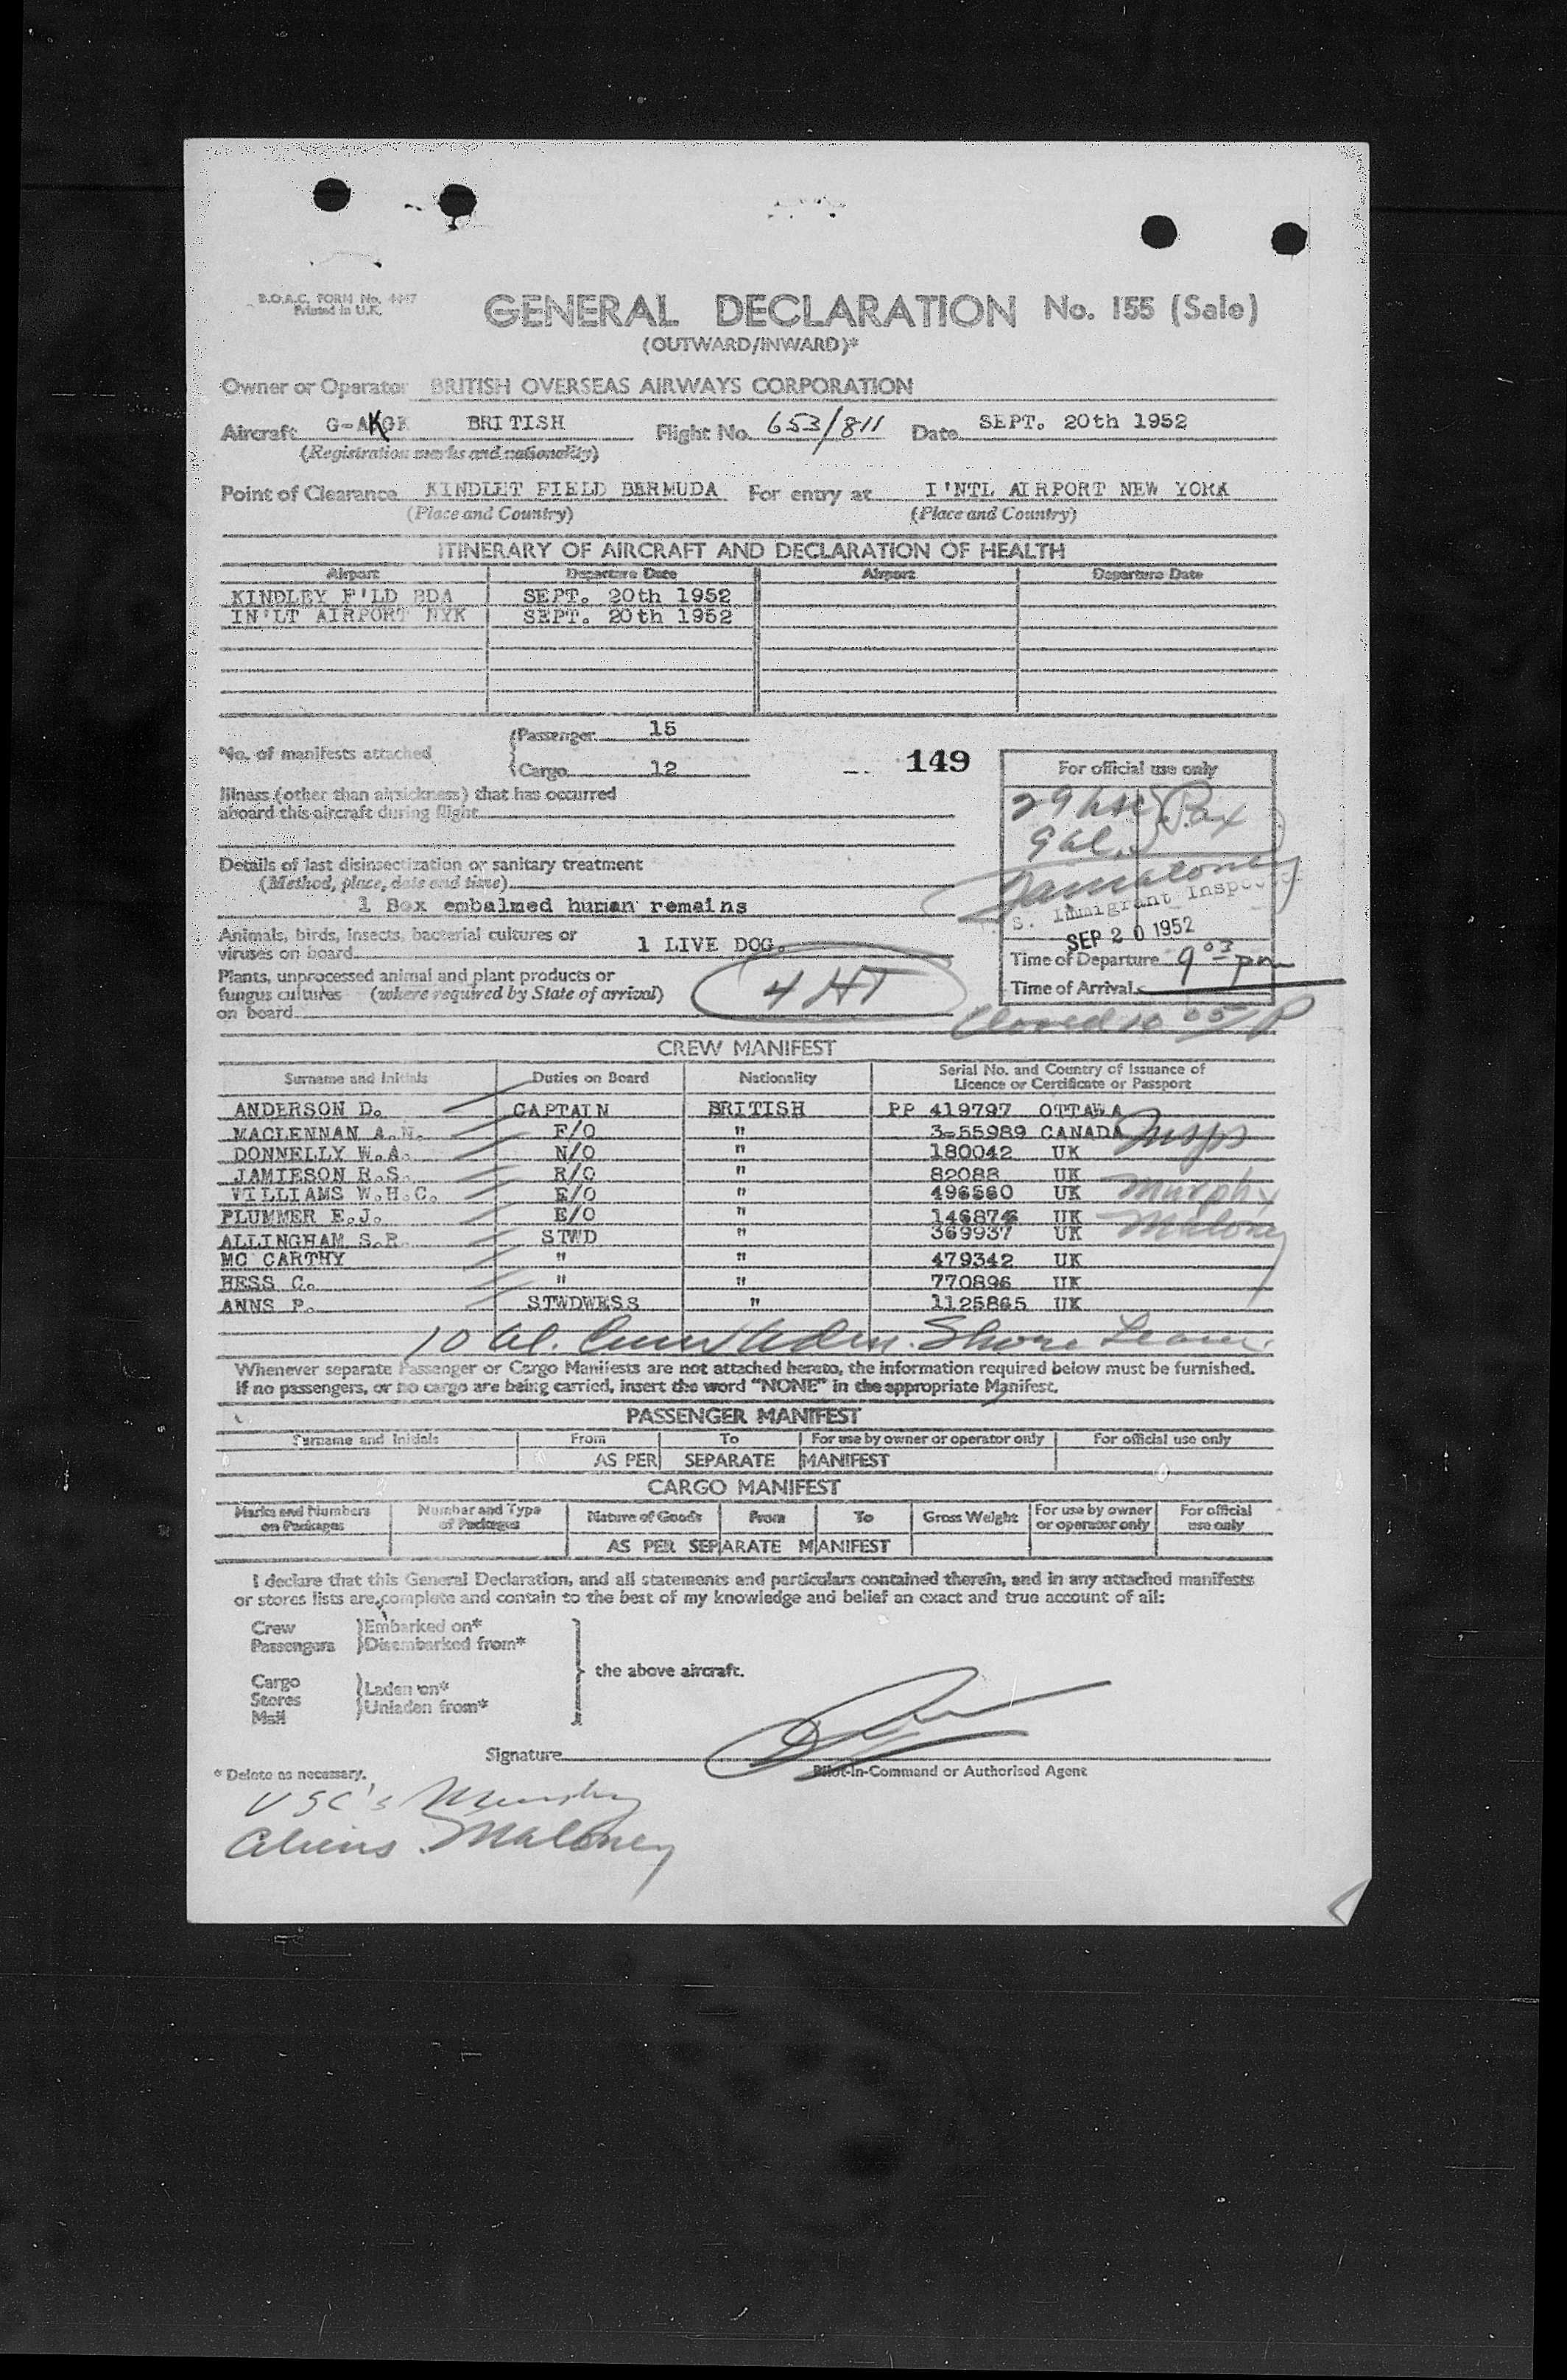 B.O.A.C. FORM No. 4447
Printed in U.K.
GENERAL DECLARATION No. 155 (Sale)
(OUTWARD/INWARD)*
Owner or Operator BRITISH OVERSEAS AIRWAYS CORPORATION
Aircraft BRITISH Flight No. 653/811 Date SEPT. 20th 1952
(Registration marks and nationality)
Point of Clearance KINDLET FIELD BERMUDA For entry at I'NTL AIRPORT NEW YORK
(Place and Country) (Place and Country)
ITINERARY OF AIRCRAFT AND DECLARATION OF HEALTH
Airport Departure Date Airport Departure Date
KINDLEY F'LD BDA SEPT. 20th 1952
IN'LT AIRPORT NYK SEPT. 20th 1952
*No. of manifests attached
Passenger 15
Cargo 12
149
For official use only
Illness (other than airsickness) that has occurred
aboard this aircraft during flight
29 Pax
9 al.
Details of last disinsectization or sanitary treatment
(Method, place, date and time)
Maloney
1 Box embalmed human remains
S. Immigrant Inspector
SEP 20 1952
Animals, birds, insects, bacterial cultures or
viruses on board 1 LIVE DOG.
Time of Departure 9 03 pm
Plants, unprocessed animal and plant products or
fungus cultures (where required by State of arrival)
on board
4 HT
Time of Arrival
Closed 10 05 P
CREW MANIFEST
Surname and Initials Duties on Board Nationality Serial No. and Country of Issuance of
Licence or Certificate or Passport
ANDERSON D. CAPTAIN BRITISH PP 419797 OTTAWA
MACLENNAN A.N. F/O " 3-55989 CANADA Insps
DONNELLY W.A. N/O " 180042 UK
JAMIESON R.S. R/O " 82088 UK
WILLIAMS W.H.C. E/O " 496560 UK Murphy
PLUMMER E.J. E/O " 146876 UK Maloney
ALLINGHAM S.R. STWD " 369937 UK
MC CARTHY " " 479342 UK
HESS C. " " 770896 UK
ANNS P. STWDWESS " 1125865 UK
10 al. Crew Adm. Shore Leave.
Whenever separate Passenger or Cargo Manifests are not attached hereto, the information required below must be furnished.
If no passengers, or no cargo are being carried, insert the word "NONE" in the appropriate Manifest.
PASSENGER MANIFEST
Surname and Initials From To For use by owner or operator only For official use only
AS PER SEPARATE MANIFEST
CARGO MANIFEST
Marks and Numbers on Packages Number and Type of Packages Nature of Goods From To Gross Weight For use by owner or operator only For official use only
AS PER SEPARATE MANIFEST
I declare that this General Declaration, and all statements and particulars contained therein, and in any attached manifests
or stores lists are complete and contain to the best of my knowledge and belief an exact and true account of all:
Crew Embarked on*
Passengers Disembarked from*
the above aircraft.
Cargo
Stores Laden on*
Mail Unladen from*
Signature
Pilot-in-Command or Authorised Agent
* Delete as necessary.
USC's Murphy
Aliens. Maloney